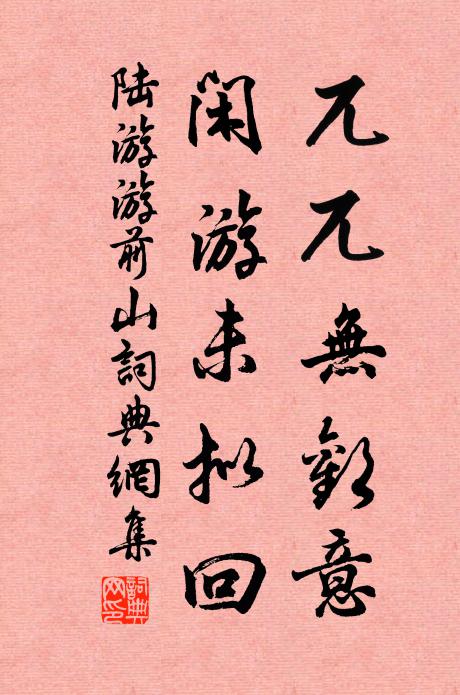 兀兀無歡意
閑游未拟回
陸游游前山詞典網集
詞典
网印